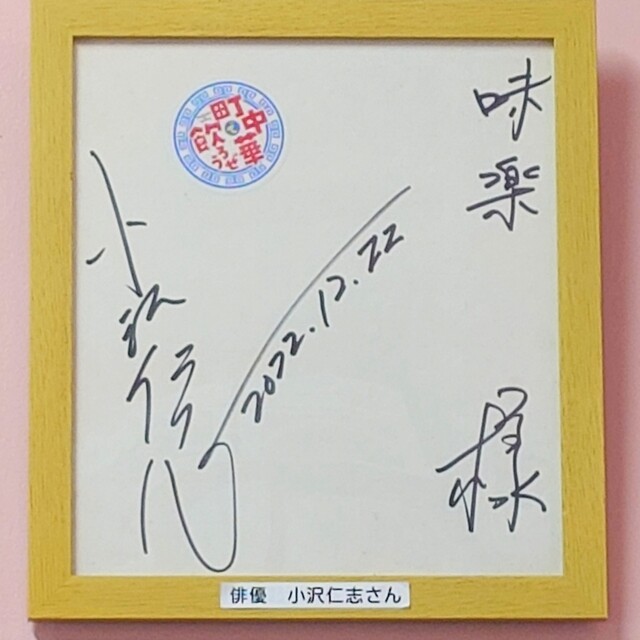 味楽
様
町中華で飲ろうぜ
2022.12.22
小沢仁志
俳優　小沢仁志さん